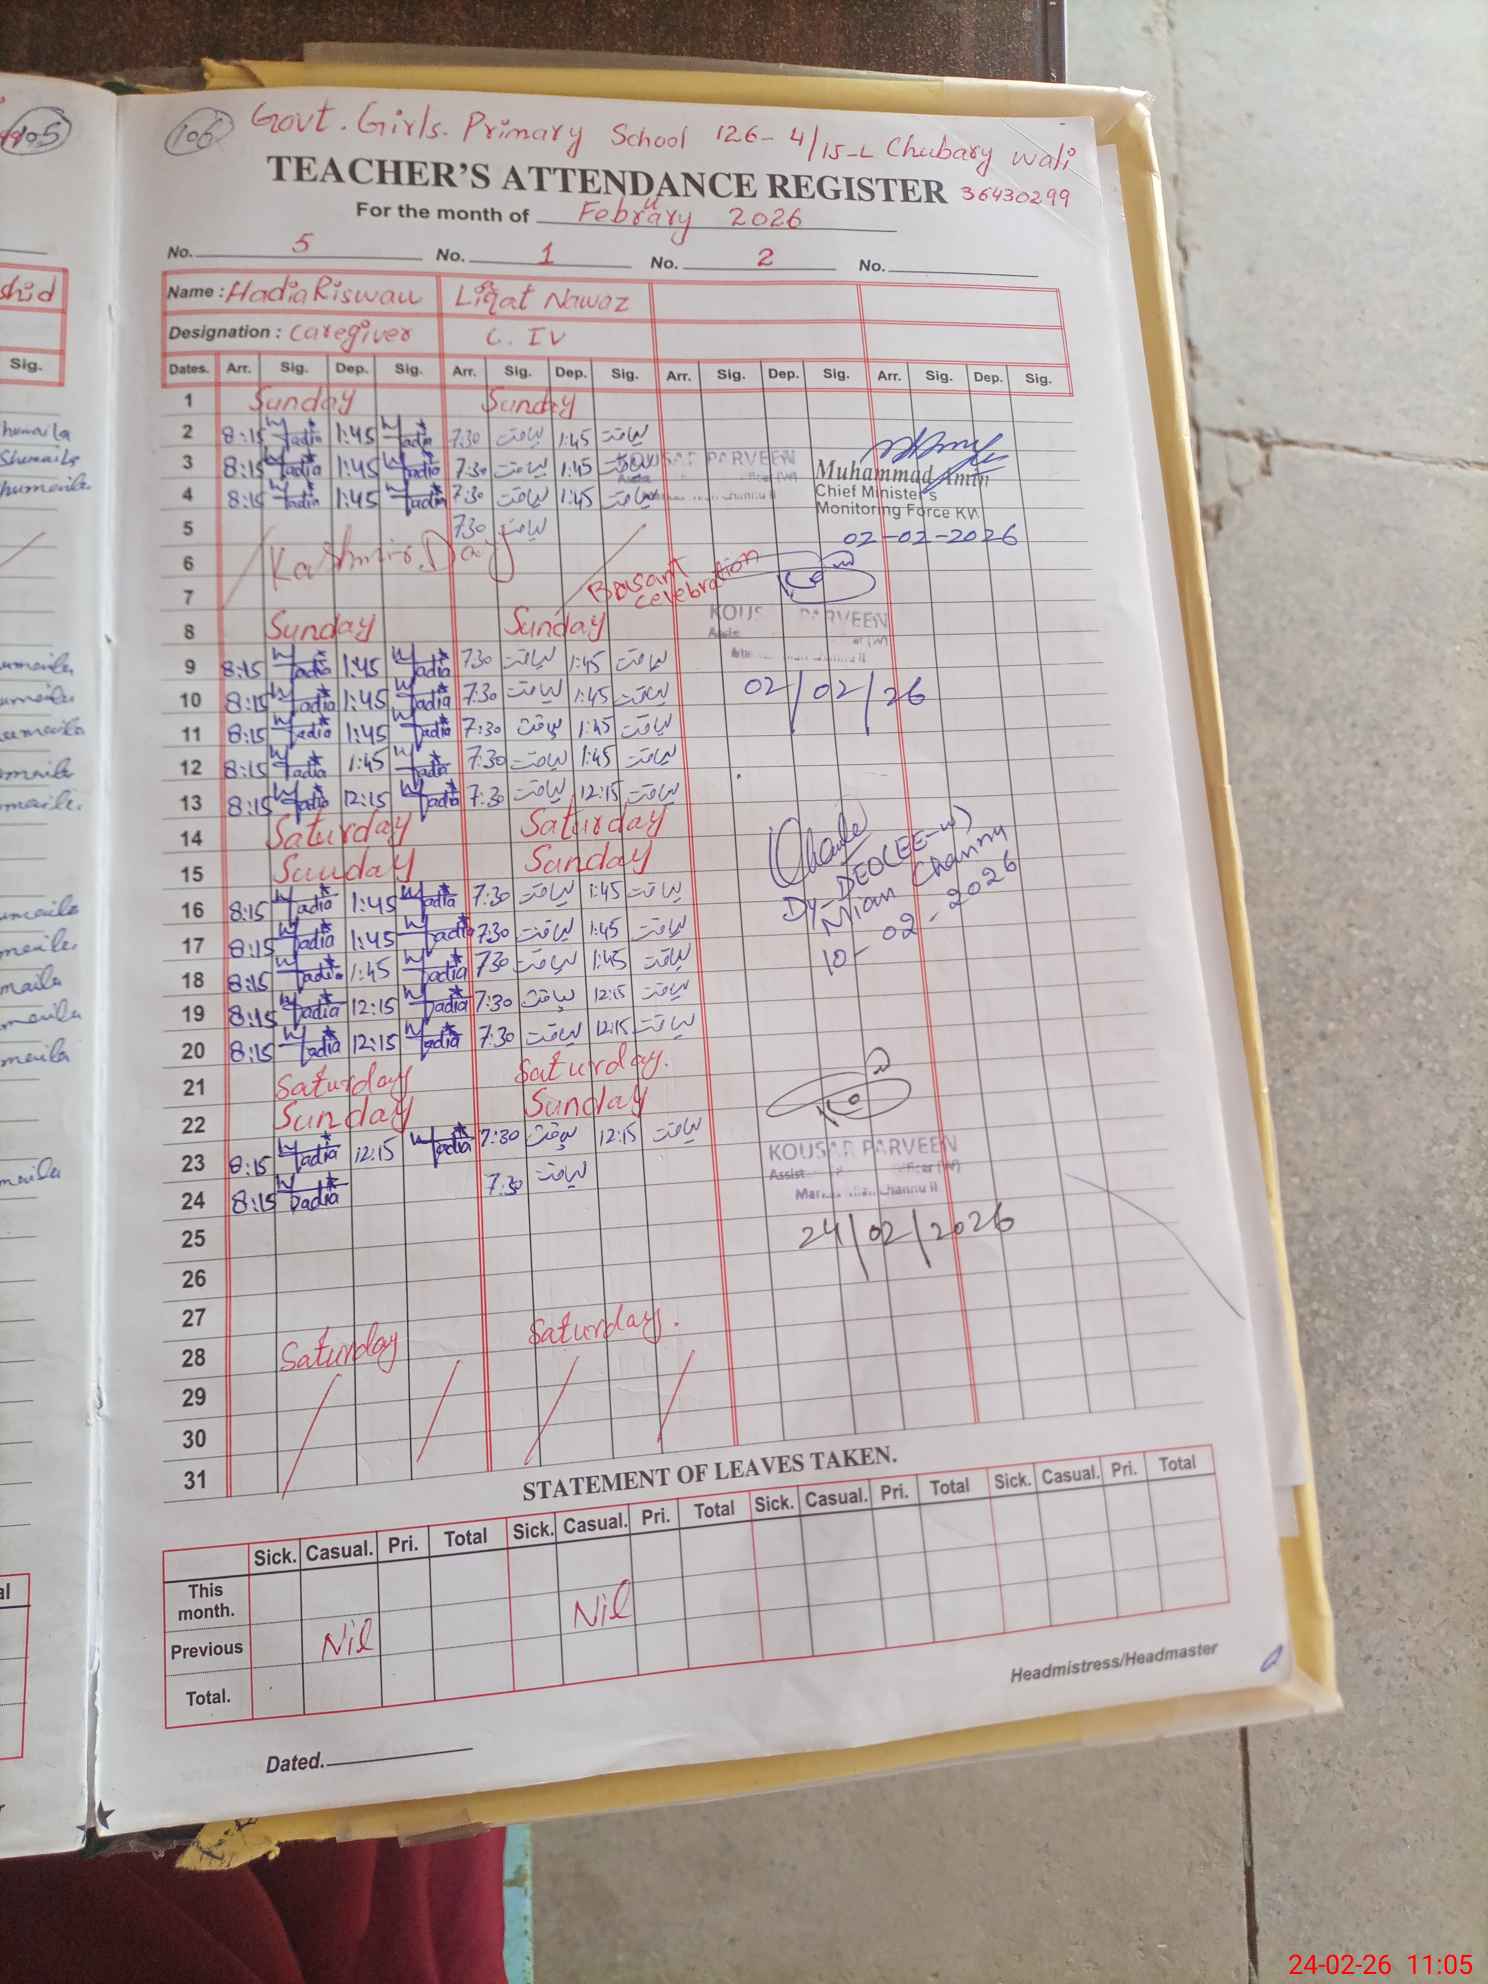 105
106
Govt. Girls. Primary School 126-4/15-L Chubary wali
TEACHER'S ATTENDANCE REGISTER 36430299
For the month of February 2026
No. 5 No. 1 No. 2 No.
shid
Name : Hadia Riswan Liqat Nawaz
Designation : Caregiver C. IV
Sig.
Dates. Arr. Sig. Dep. Sig. Arr. Sig. Dep. Sig. Arr. Sig. Dep. Sig. Arr. Sig. Dep. Sig.
1 Sunday Sunday
2 8:15 Hadia 1:45 Hadia 7:30 لیاقت 1:45 لیاقت
3 8:15 Hadia 1:45 Hadia 7:30 لیاقت 1:45 لیاقت
KOUSAR PARVEEN
4 8:15 Hadia 1:45 Hadia 7:30 لیاقت 1:45 لیاقت
Muhammad Amin
Chief Minister's
Monitoring Force KW
02-02-2026
5 7:30 لیاقت
6 Kashmir Day
Basant celebration
7
8 Sunday Sunday
KOUS PARVEEN
9 8:15 Hadia 1:45 Hadia 7:30 لیاقت 1:45 لیاقت
10 8:15 Hadia 1:45 Hadia 7:30 لیاقت 1:45 لیاقت
02/02/26
11 8:15 Hadia 1:45 Hadia 7:30 لیاقت 1:45 لیاقت
12 8:15 Hadia 1:45 Hadia 7:30 لیاقت 1:45 لیاقت
13 8:15 Hadia 12:15 Hadia 7:30 لیاقت 12:15 لیاقت
14 Saturday Saturday
15 Sunday Sunday
Dy-DEO(EE-W)
Mian Channu
10-02-2026
16 8:15 Hadia 1:45 Hadia 7:30 لیاقت 1:45 لیاقت
17 8:15 Hadia 1:45 Hadia 7:30 لیاقت 1:45 لیاقت
18 8:15 Hadia 1:45 Hadia 7:30 لیاقت 1:45 لیاقت
19 8:15 Hadia 12:15 Hadia 7:30 لیاقت 12:15 لیاقت
20 8:15 Hadia 12:15 Hadia 7:30 لیاقت 12:15 لیاقت
21 Saturday Saturday.
22 Sunday Sunday
23 8:15 Hadia 12:15 Hadia 7:30 لیاقت 12:15 لیاقت
KOUSAR PARVEEN
24 8:15 Hadia 7:30 لیاقت
24/02/2026
25
26
27
28 Saturday Saturday.
29
30
31
STATEMENT OF LEAVES TAKEN.
Sick. Casual. Pri. Total Sick. Casual. Pri. Total Sick. Casual. Pri. Total Sick. Casual. Pri. Total
This month.
Nil
Previous Nil
Total.
Headmistress/Headmaster
Dated.
24-02-26 11:05